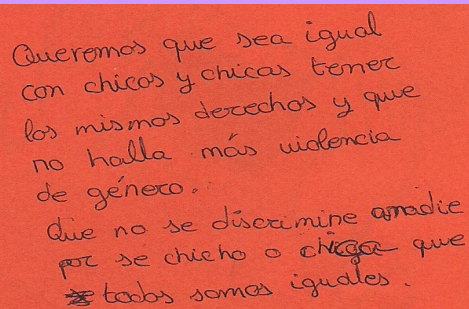 Queremos que sea igual
con chicos y chicas tener
los mismos derechos y que
no halla más violencia
de género.
Que no se discrimine anadie
por se chicho o chica que
todos somos iguales.